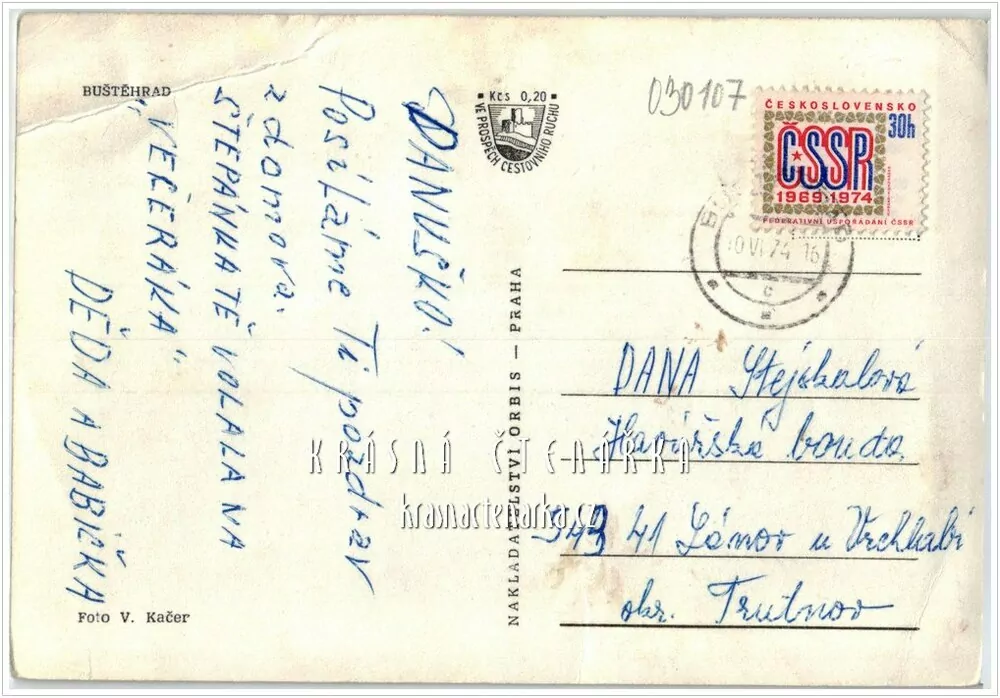 BUŠTĚHRAD
DANUŠKO!
Posíláme Ti pozdrav
z domova.
ŠTEPÁNKA TĚ VOLALA NA
„VEČERÁKA"
DĚDA A BABIČKA
Foto V. Kačer
Kčs 0,20
VE PROSPĚCH CESTOVNÍHO RUCHU
NAKLADATELSTVÍ ORBIS — PRAHA
030107
ČESKOSLOVENSKO
30h
ČSSR
1969-1974
FEDERATIVNÍ USPOŘÁDÁNÍ ČSSR
0 VI 74 16
C
DANA Stejskalová
Havířská bouda
543 41 Lánov u Vrchlabí
okr. Trutnov
KRÁSNÁ ČTENÁŘKA
krasnactenarka.cz